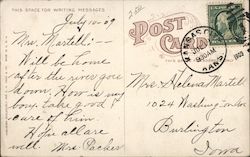 THIS SPACE FOR WRITING MESSAGES
July 10-09
Mrs. Martell:—
Will be home
after the river goes
down. How is my
boy. take good
care of him.
Hope all are
well Mrs Packer
POST CARD
KANSAS
930AM
KANS
1909
Mrs Helena Martel
1024 Washington
Burlington
Iowa